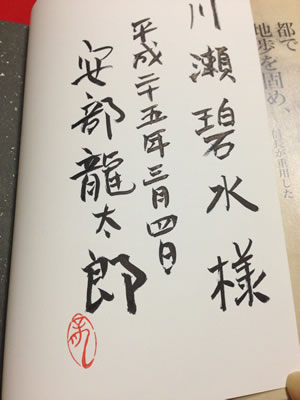 川瀬碧水様
平成二十五年三月四日
安部龍太郎
都で
地歩を固め、
信長が重用した